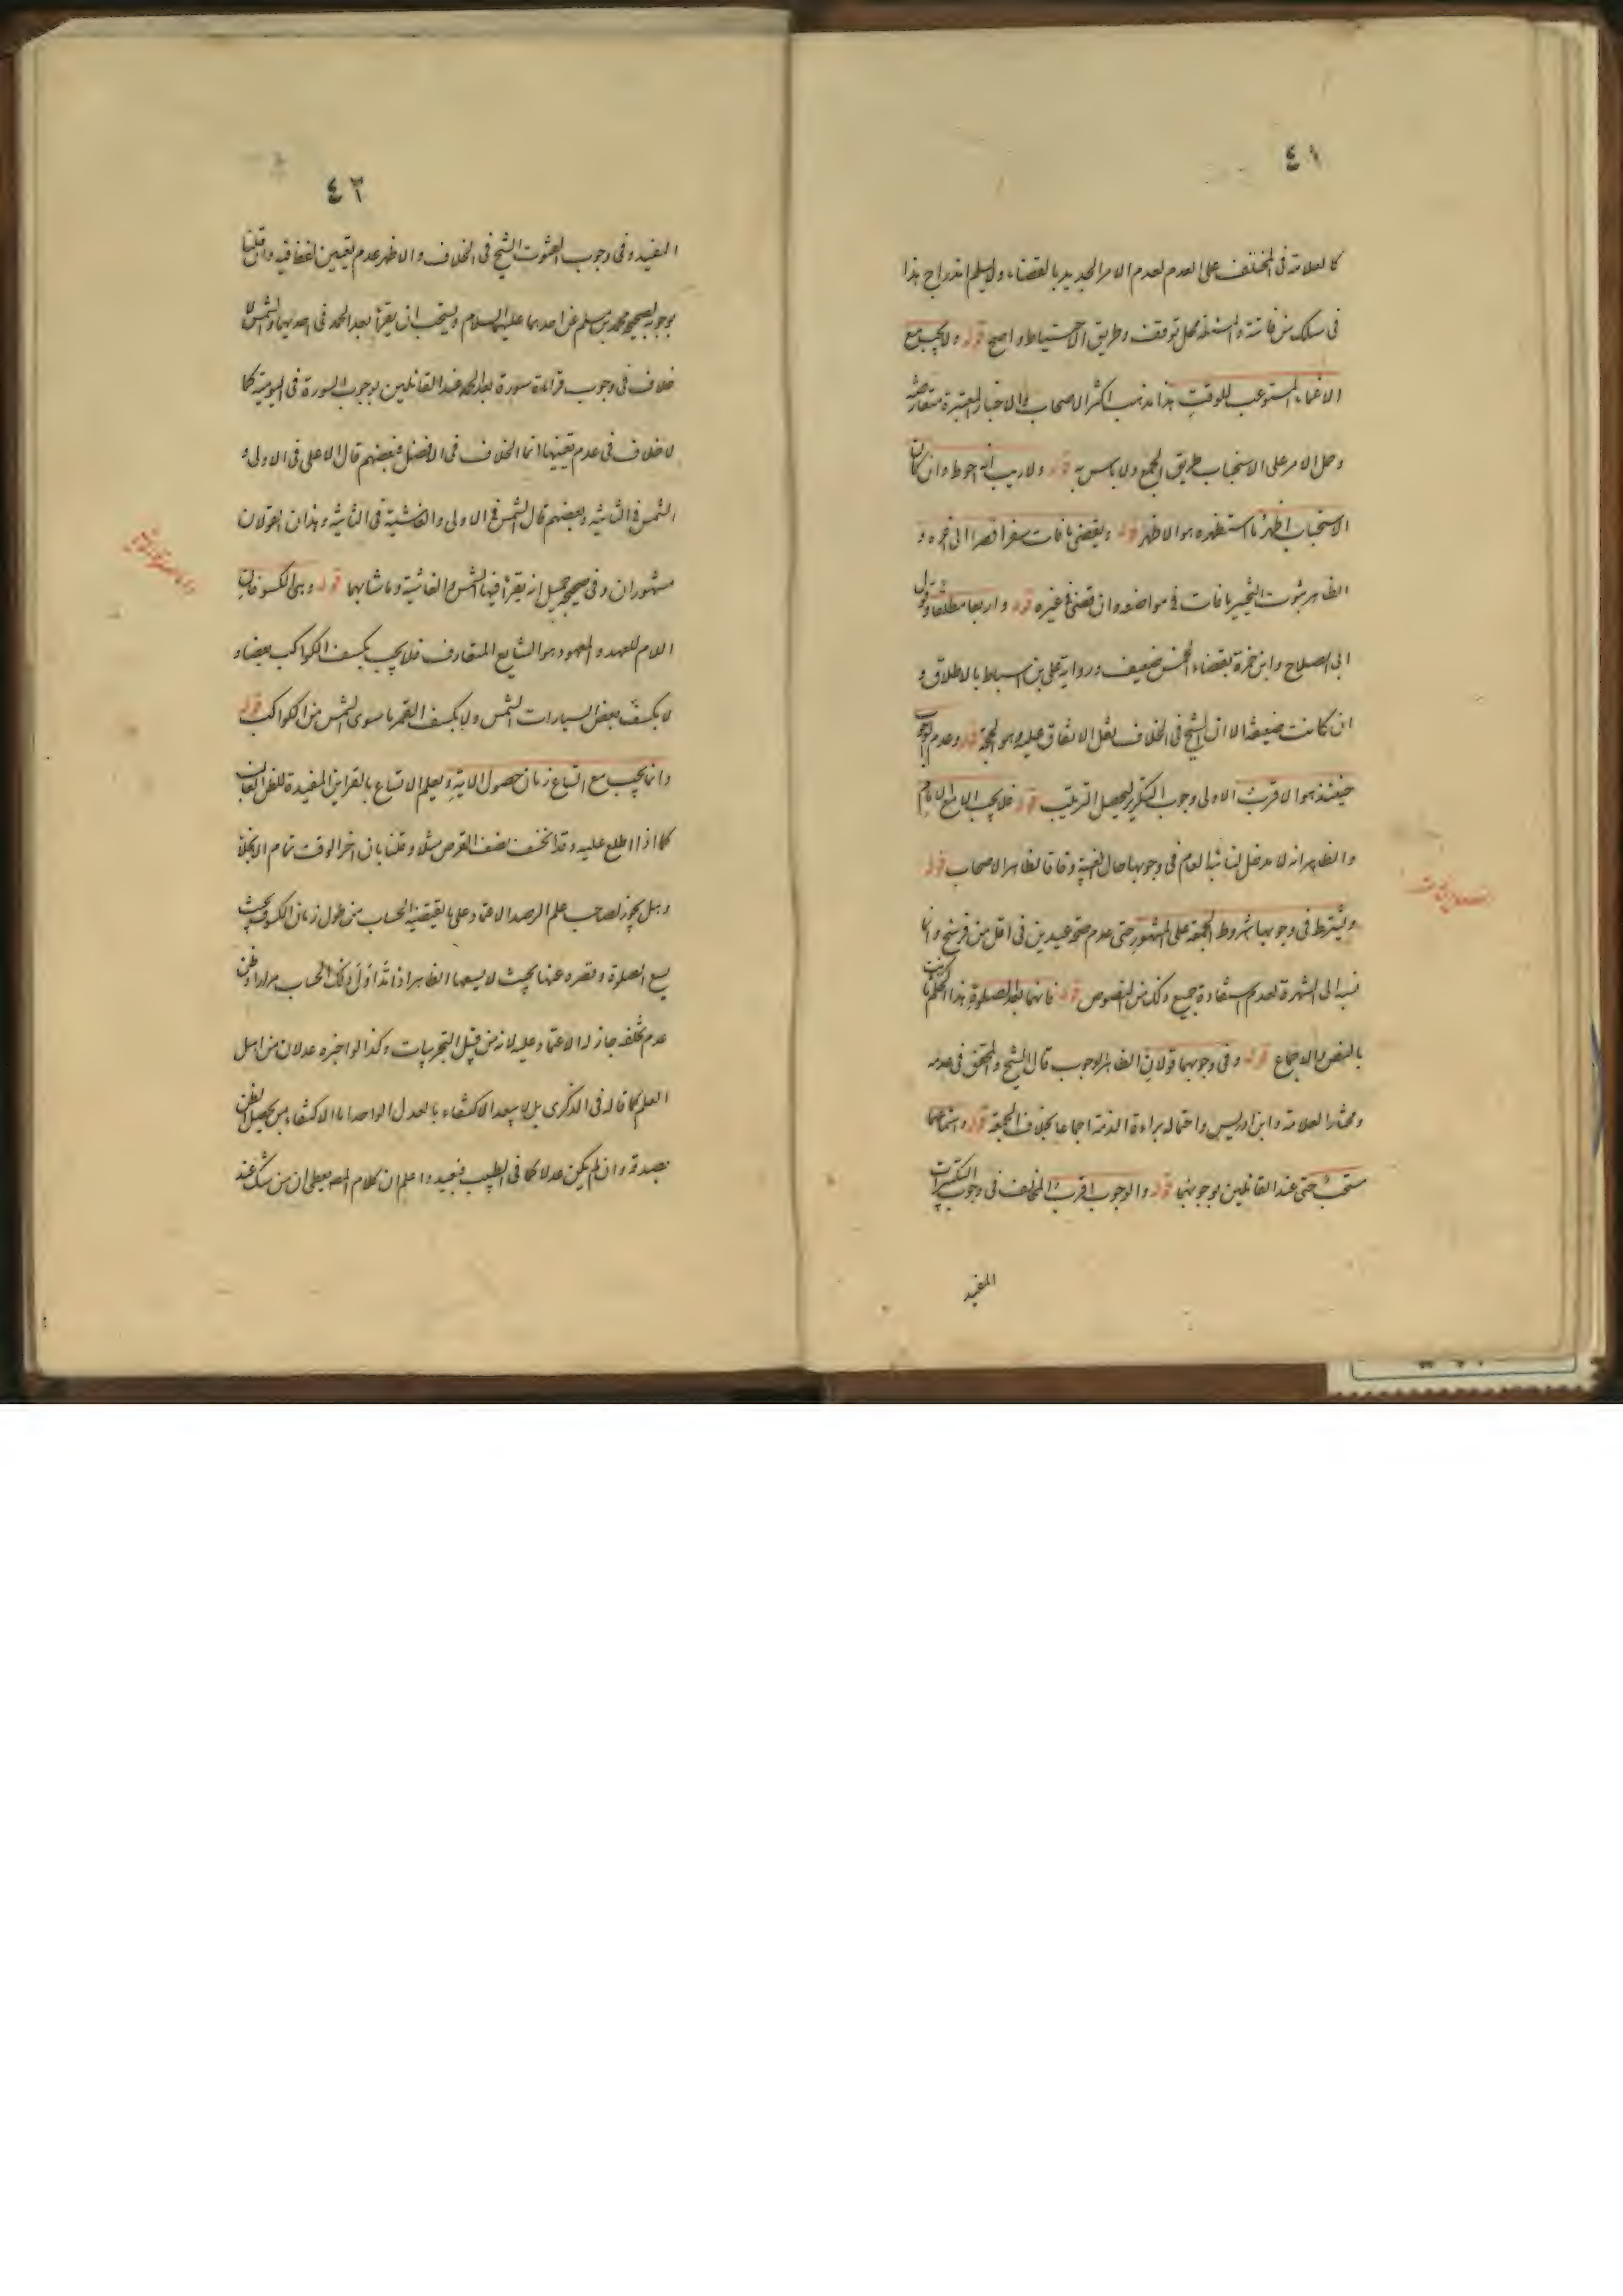 ٤١
كالعلامة في المختلف على العدم لعدم الامر الجديد بالقضاء ولم يسلم اندراج هذا
في سلك من فاتته والمسئلة محل توقف وطريق الاحتياط واضح قوله ولا يجب مع
الاغماء المستوعب للوقت هذا مذهب اكثر الاصحاب والاخبار المعتبرة متعارضة
وحمل الامر على الاستحباب طريق الجمع ولا باس به قوله ولا ريب انه احوط وان كان
الاستحباب اظهر ما استظهره هو الاظهر قوله ويقضي ما فات سفرا قصرا الى اخره و
الظاهر ثبوت التخيير ما فات في مواضعه وان قضى في غيره قوله واربعا مطلقا وقول
ابي الصلاح وابن حمزة بقضاء الخمس ضعيف ورواية علي بن اسباط بالاطلاق و
ان كانت ضعيفة الا ان الشيخ في الخلاف نقل الاتفاق عليه وهو الحجة قوله وعدم الوجوب
حينئذ هو الاقرب الاولى وجوب التكرير ليحصل الترتيب قوله فلا يجب الا مع الامام
والظاهر انه لا مدخل لنائبه العام في وجوبها حال الغيبة وفاقا لظاهر الاصحاب قوله
ويشترط في وجوبها شروط الجمعة على المشهور حتى عدم صحة عيدين في اقل من فرسخ وانما
نسبه الى الشهرة لعدم استفادة جميع ذلك من النصوص قوله فانهما بعد الصلوة هذا الحكم ثابت
بالنص والاجماع قوله وفي وجوبهما قولان الظاهر الوجوب قال الشيخ والمحقق في عدمه
ومختار العلامة وابن ادريس واحتماله براءة الذمة اجماعا بخلاف الجمعة قوله واستماعهما
مستحب حتى عند القائلين بوجوبهما قوله والوجوب اقرب المخالف في وجوب التكبيرات
المفيد
٤٢
المفيد وفي وجوب القنوت الشيخ في الخلاف والاظهر عدم تعيين لفظ فيه وان قلنا
بوجوبه لصحيح محمد بن مسلم عن احدهما عليهما السلام ويستحب ان يقرأ بعد الحمد في احديهما والشمس لا
خلاف في وجوب قراءة سورة بعد الحمد عند القائلين بوجوب السورة في اليومية كما
لا خلاف في عدم تعيينها انما الخلاف في الافضل فبعضهم قال الاعلى في الاولى و
الشمس في الثانية وبعضهم قال الشمس في الاولى والغاشية في الثانية وهذان القولان
مشهوران وفي صحيح جميل انه يقرأ فيها الشمس والغاشية وما شابهها قوله وهي الكسوفان
اللام للعهد والمعهود هو الشايع المتعارف فلا يجب بكسف الكواكب بعضها و
لا بكسف بعض السيارات الشمس ولا بكسف القمر ما سوى الشمس من الكواكب قوله
وانما يجب مع اتساع زمان حصول الاية ويعلم الاتساع بالقراين المفيدة للظن الغالب
كما اذا اطلع عليه وقد انخسف نصف القرص مثلا وقلنا بان اخر الوقت تمام الانجلاء
وهل يجوز لصاحب علم الرصد الاعتماد على ما يقتضيه الحساب من طول زمان الكسوف بحيث
يسع الصلوة وقصره عنها بحيث لا يسعها الظاهر اذا تداول ذلك الحساب مرارا وظن
عدم تخلفه جاز له الاعتماد عليه لانه من قبيل التجربيات وكذا لو اخبره عدلان من اهل
العلم كما قاله في الذكرى بل لا يبعد الاكتفاء بالعدل الواحد اما الاكتفاء بمن يحصل الظن
بصدقه وان لم يكن عدلا كما في الطبيب فبعيد واعلم ان كلام المص يعطي ان من شك عند